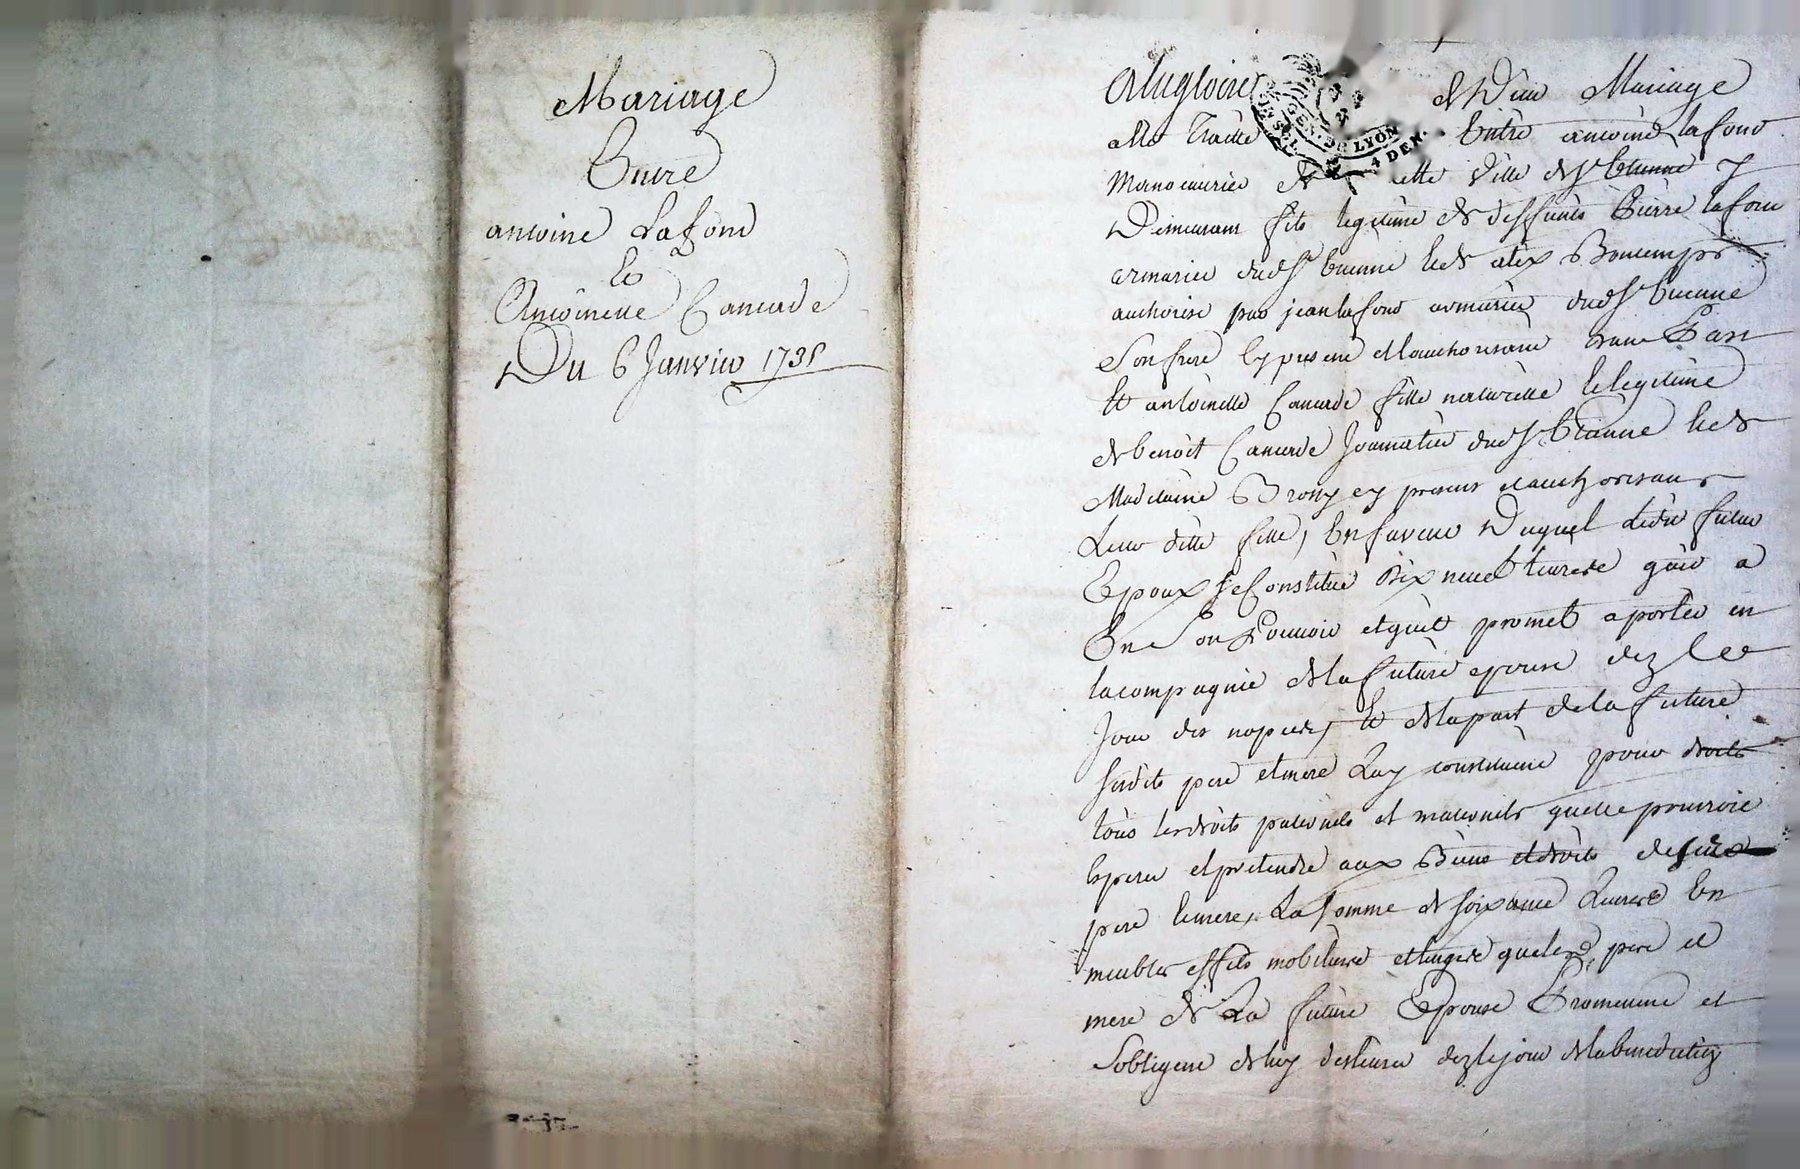 Mariage
Entre
antoine Lafond
Et
Antoinette Camade
Du 6 Janvier 1735
Alagloire de Dieu Mariage
GEN. DE LYON
4 DEN.
Entre antoine Lafond
cette ville de St Etienne y
Demeurant fils legitime de deffunts Pierre lafond
armurier dudt St Etienne et de alix Bontemps
authorisé par jean lafond armurier dudt St Etienne
Son frere Cy present dune Part
Et antoinette Camade fille naturelle et legitime
de benoit Camade Journalier dudt St Etienne et de
Madelaine Brossy cy presents et authorisant
Leur ditte fille, En faveur Duquel ledit futur
Epoux se Constitue Dix neuf livres quil a
En Son Pouvoir et quil promet aporter en
la compagnie de la future epouse dez le
Jour des nopces, Et de la part de la future
sesdits pere et mere Luy constituent pour droits
tous les droits paternels et maternels quelle pourroit
Esperer et pretendre aux Biens et droits de ses
pere et mere, La somme de soixante Livres En
meubles effets mobiliers et linges que les pere et
mere de La future Epouse Promettent et
Sobligent de luy deslivrer dez le jour de la benediction